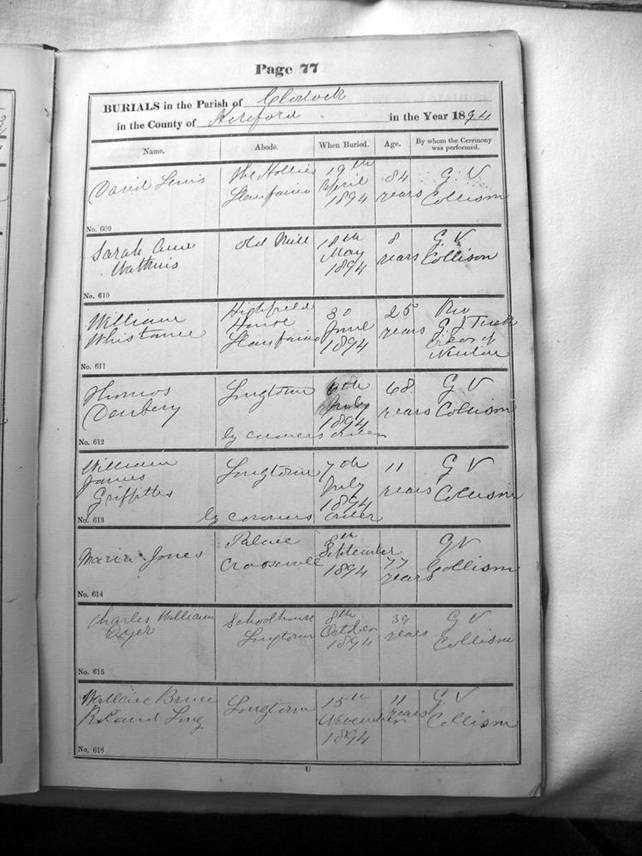 Page 77
BURIALS in the Parish of Clodock
in the County of Hereford in the Year 1894
Name. Abode. When Buried. Age. By whom the Ceremony was performed.
David Lewis The Hollies 19th 84 G. V
Llanfaino April years Collison
1894
No. 609
Sarah Ann Old Mill 18th 8 G V
Watkins May years Collison
1894
No. 610
William Highfield 30 25 Rev
Whistance House June years G J Tuck
Llanfaino 1894 of
No. 611
Thomas Longtown 6th 68 G V
July years Collison
1894
No. 612 by coroners order
William Longtown 7th 11 G V
James July years Collison
Griffiths 1894
No. 613 by coroners order
Maria Jones Palace 8th 77 G V
September years Collison
1894
No. 614
Charles William Schoolhouse 8th 39 G V
Longtown October years Collison
1894
No. 615
Wallace Bruce Longtown 15th 11 G V
Roland Long November years Collison
1894
No. 616
U